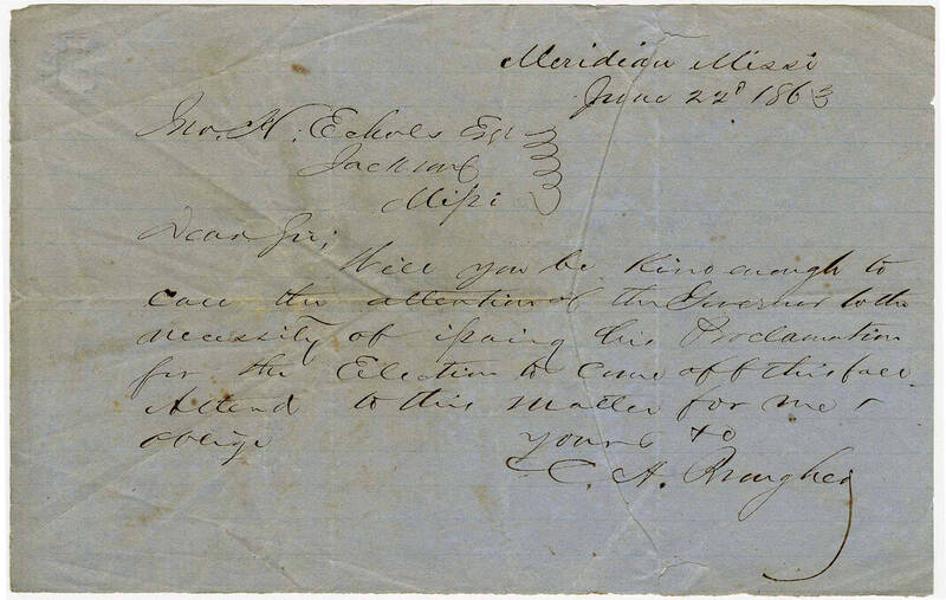 Meridian Missi
June 22d 1863
Jno. H. Echols Esqr
Jackson
Missi
Dear Sir;
Will you be kind enough to
call the attention of the Governor to the
necessity of issuing his Proclamation
for the Election to come off this fall.
Attend to this matter for me &
oblige yours &c
C. A. Brougher